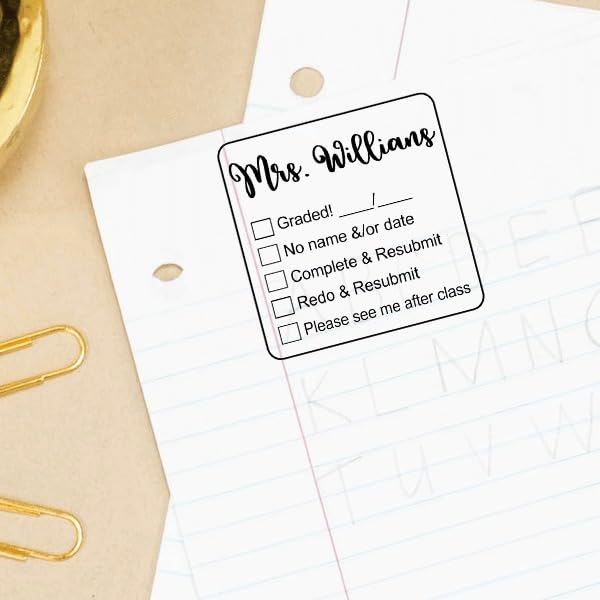 Mrs. Willians
Graded! ____/____
No name &/or date
Complete & Resubmit
Redo & Resubmit
Please see me after class
K L M N
T U V W